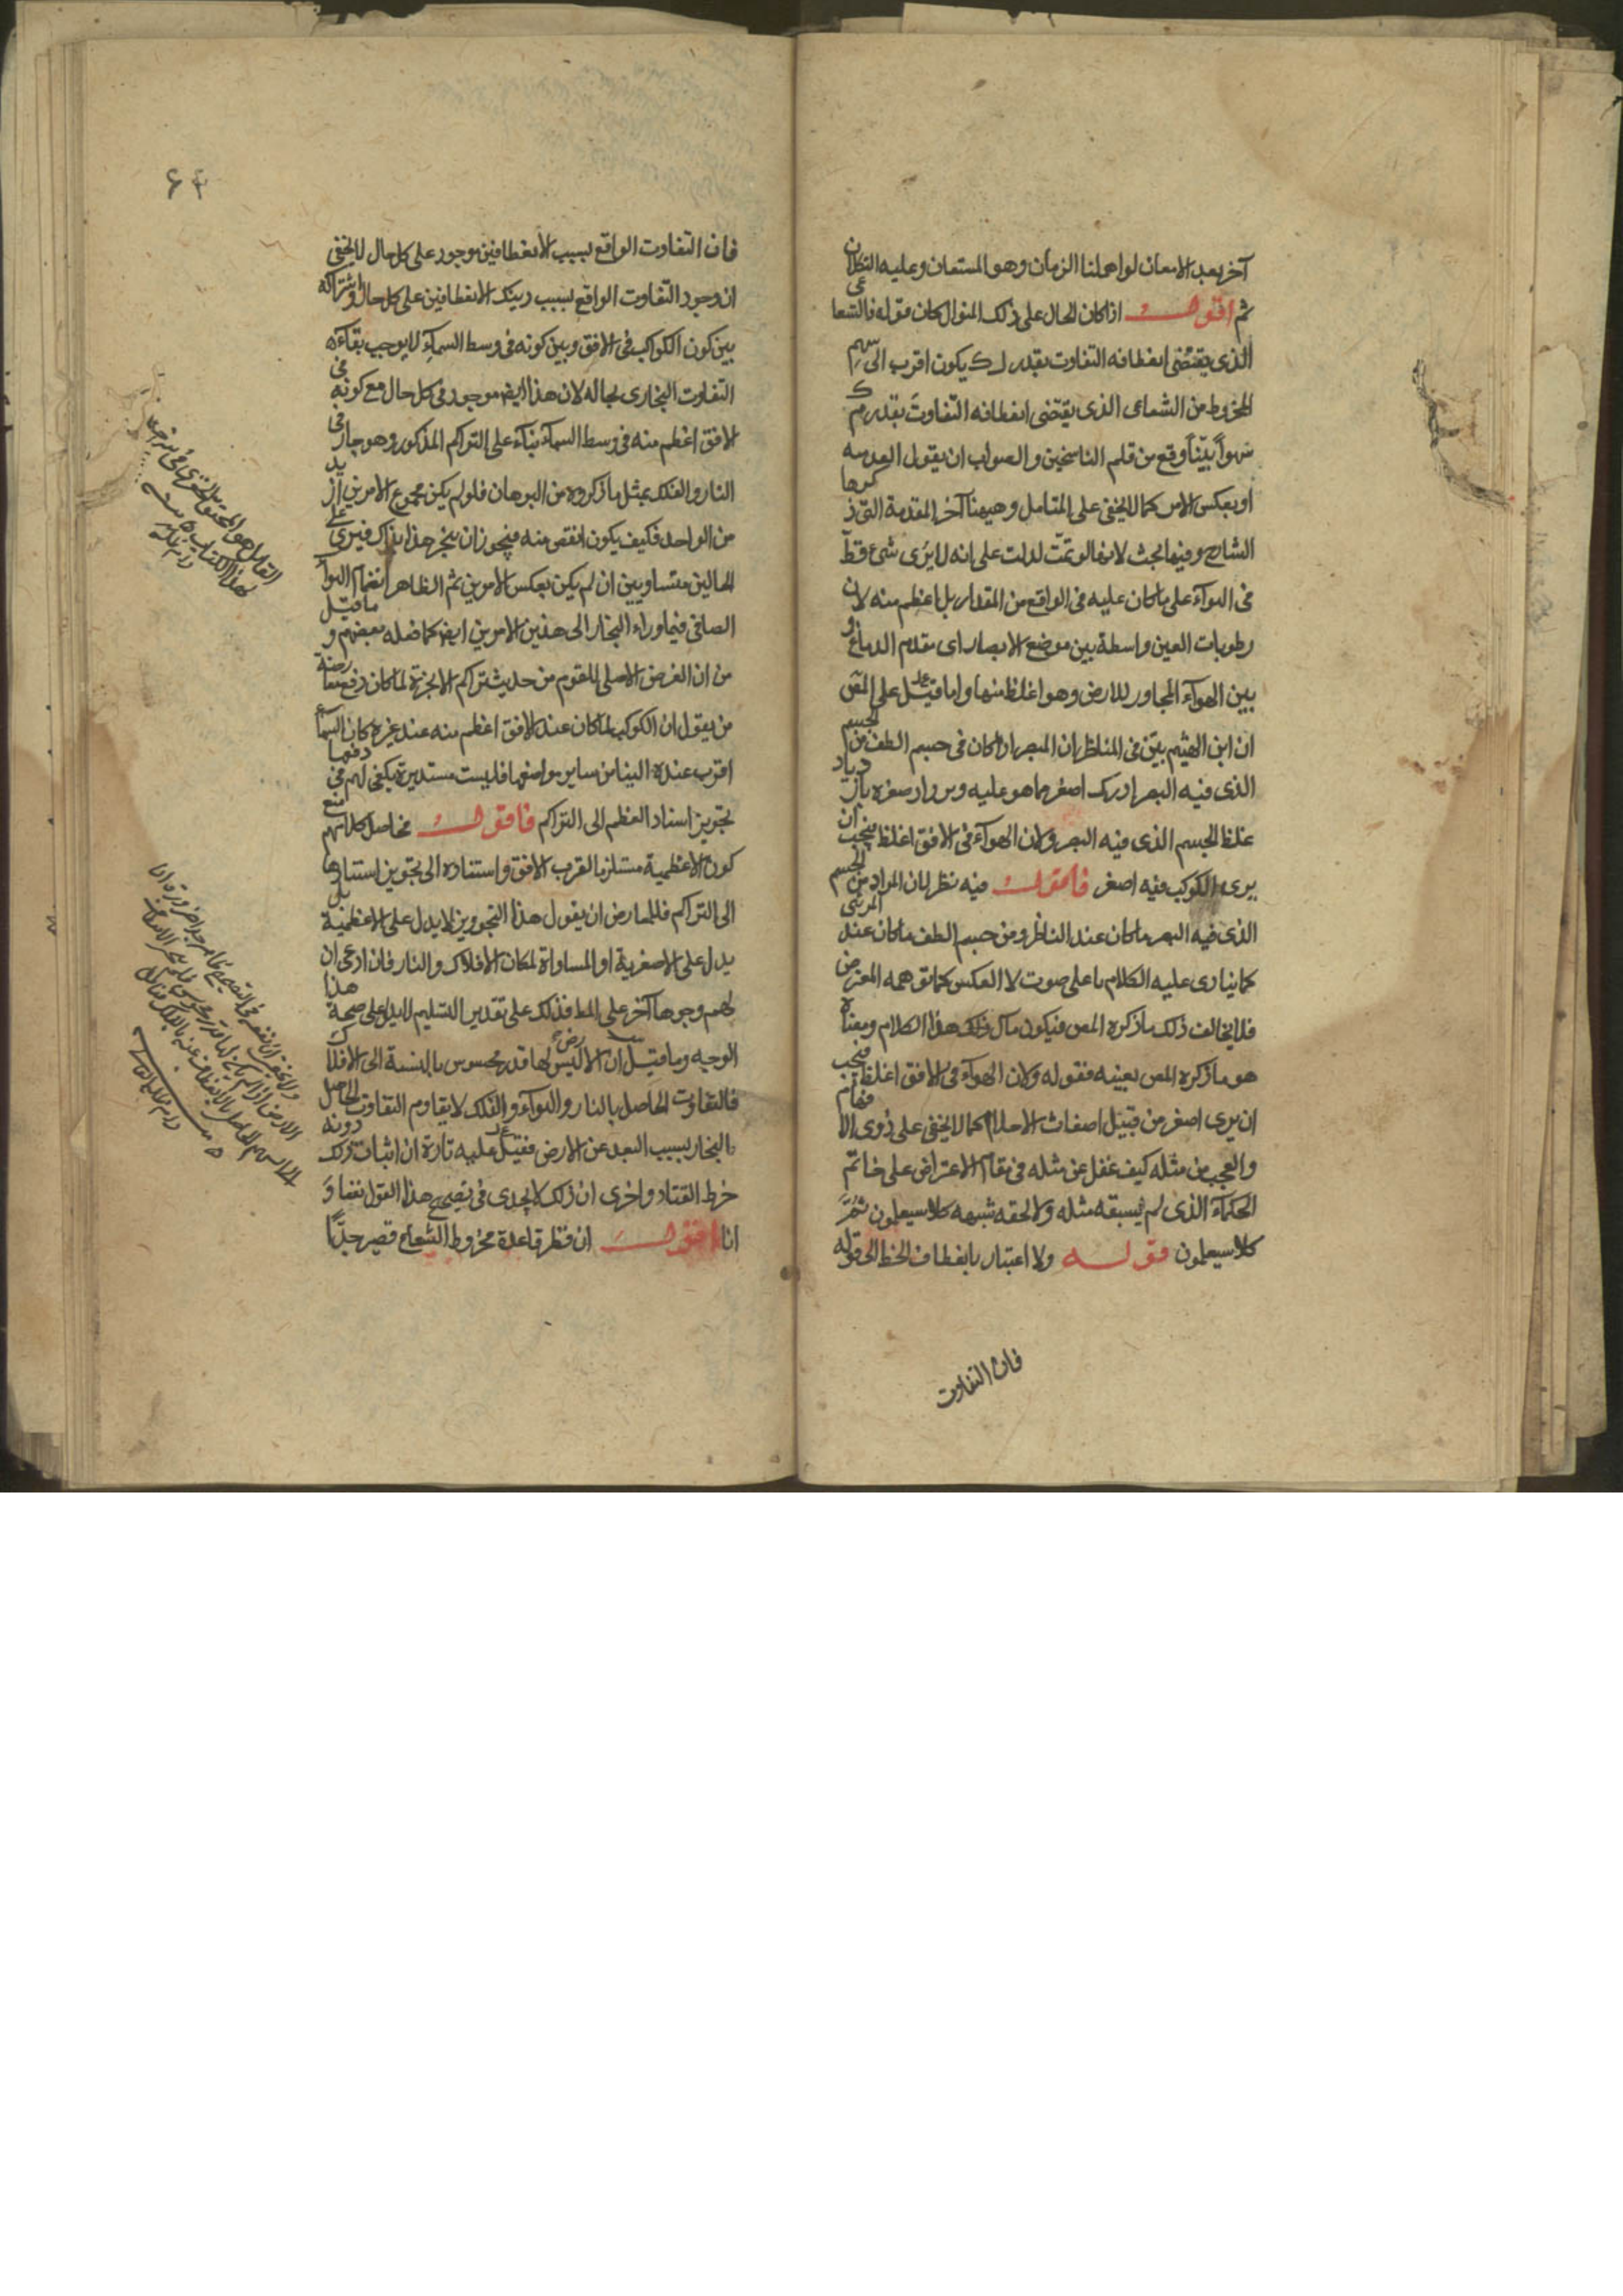 آخر بعد الامعان لو امهلنا الزمان وهو المستعان وعليه التكلان
ثم اقول اذا كان الحال على ذلك المنوال كان قوله فالشعاعى
الذى يقتضى انعطافه التفاوت بقدر ل ك يكون اقرب الى سهم
المخروط من الشعاعى الذى يقتضى انعطافه التفاوت بقدر م ك
سهوا بيّنا وقع من قلم الناسخين والصواب ان يقول ابعد منه
او يعكس الامر كما لا يخفى على المتامل وههنا آخر المقدمة التى ذكرها
الشارح وفيها بحث لانها لو تمّت لدلت على انه لا يرى شىء قطّ
فى الهوآء على ما كان عليه فى الواقع من المقدار بل اعظم منه لان
رطوبات العين واسطة بين موضع الابصار اى مقدم الدماغ و
بين الهوآء المجاور للارض وهو اغلظ منها واما قيل على المص
ان ابن الهيثم بيّن فى المناظر ان المبصر اذا كان فى جسم الطف من الجسم
الذى فيه البصر ادرك اصغر مما هو عليه ويزداد صغره بازدياد
غلظ الجسم الذى فيه البصر ولان الهوآء فى الافق اغلظ فيجب ان
يرى الكوكب فيه اصغر فاقول فيه نظر لان المراد من الجسم
الذى فيه البصر ما كان عند الناظر ومن جسم الطف ما كان عند المرئى
كما ينادى عليه الكلام باعلى صوت لا العكس كما توهمه المعترض
فلا يخالف ذلك ما ذكره المص فيكون مآل هذا الكلام ومعناه
هو ما ذكره المص بعينه فقوله ولان الهوآء فى الافق اغلظ فيجب
ان يرى اصغر من قبيل اضغاث الاحلام كما لا يخفى على ذوى الافهام
والعجب من مثله كيف غفل عن مثله فى مقام الاعتراض على خاتم
الحكمآء الذى لم يسبقه مثله ولا لحقه شبهه كلا سيعلمون ثم
كلا سيعلمون قوله ولا اعتبار بانعطاف الخط الى قوله
فان التفاوت
فان التفاوت الواقع بسبب الانعطافين موجود على كل حال لا يخفى
ان وجود التفاوت الواقع بسبب ذينك الانعطافين على كل حال واشتراكه
بين كون الكواكب فى الافق وبين كونه فى وسط السمآء لا يوجب بقآءه
التفاوت البخارى بحاله لان هذا ايضا موجود فى كل حال مع كونه فى
الافق اعظم منه فى وسط السمآء بنآء على التراكم المذكور وهو جار فى
النار والفلك بمثل ما ذكروه من البرهان فلو لم يكن مجموع الامرين ازيد
من الواحد فكيف يكون انقص منه فيجوز ان ينجر هذا بذاك فيرى على
الحالين متساويين ان لم يكن بعكس الامرين ثم الظاهر انضمام الهوآء
الصافى فيما ورآء البخار الى هذين الامرين ايضا كما فصله بعضهم وما قيل
من ان الغرض الاصلى للقوم من حديث تراكم الابخرة لما كان دفع معارضة
من يقول ان الكوكب لما كان عند الافق اعظم منه عند غيره كان السمآء
اقرب عنده الينا من ساير مواضعها فليست مستديرة يكفى لهم فى دفعها
تجويز اسناد العظم الى التراكم فاقول فحاصل كلامهم منع
كون الاعظمية مستلزما لقرب الافق واستناده الى تجويز استنادها
الى التراكم فللمعارض ان يقول هذا التجويز لا يدل على الاعظمية بل
يدل على الاصغرية او المساواة لمكان الافلاك والنار فان ادعى ان
لهم وجوها آخر على المط فذلك على تقدير التسليم لا يدل على صحة هذا
الوجيه وما قيل ان الارض ليس لها قدر محسوس بالنسبة الى الافلاك
فالتفاوت الحاصل بالنار والهوآء والفلك لا يقاوم التفاوت الحاصل
بالبخار بسبب البعد عن الارض فقيل عليه تارة ان اثبات ذلك دونه
خرط القتاد واخرى ان ذلك لا يجدى فى تصحيح هذا القول نفعا و
انا اقول ان قطر قاعدة مخروط الشعاع قصير جدّا